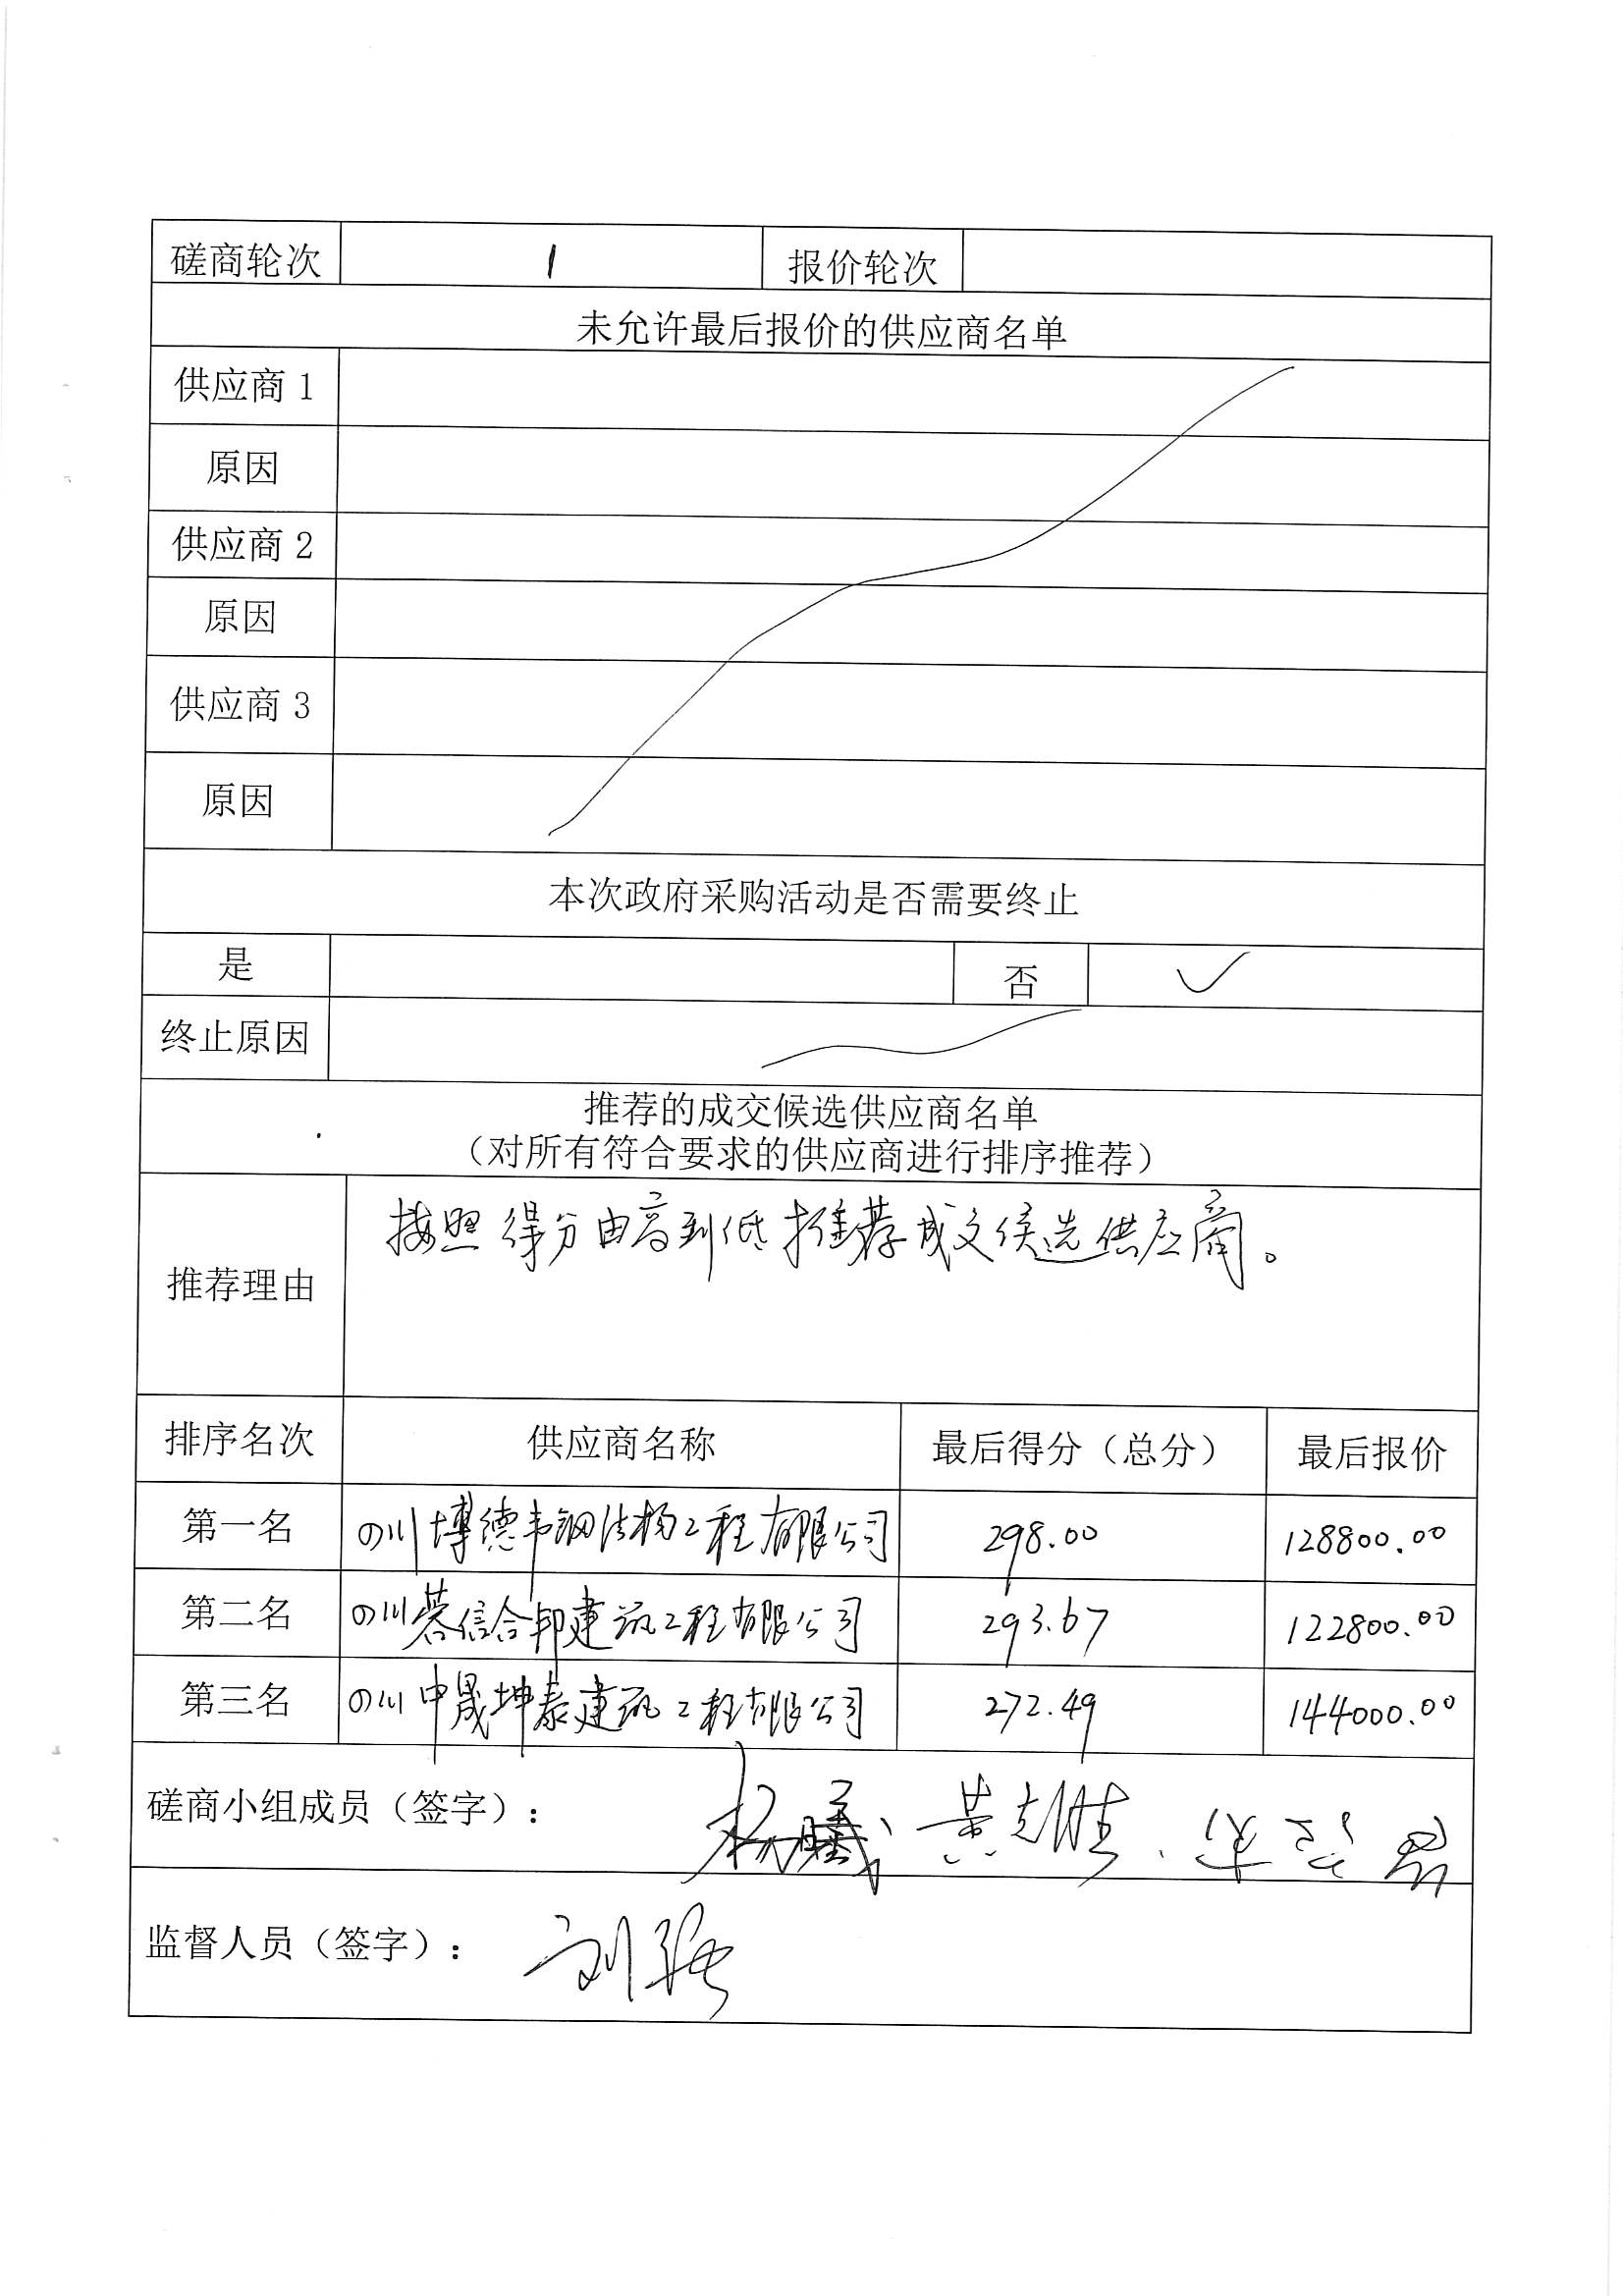 磋商轮次 1 报价轮次
未允许最后报价的供应商名单
供应商 1
原因
供应商 2
原因
供应商 3
原因
本次政府采购活动是否需要终止
是 否 ✓
终止原因
推荐的成交候选供应商名单
（对所有符合要求的供应商进行排序推荐）
按照得分由高到低推荐成交候选供应商。
推荐理由
排序名次 供应商名称 最后得分（总分） 最后报价
第一名 四川博德韦钢结构工程有限公司 298.00 128800.00
第二名 四川蓉信合邦建筑工程有限公司 293.67 122800.00
第三名 四川中晟坤泰建筑工程有限公司 272.49 144000.00
磋商小组成员（签字）：
监督人员（签字）： 刘强